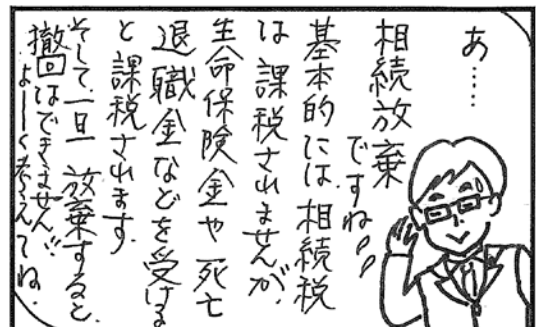 あ……
相続放棄
ですね
基本的には、相続税
は課税されませんが、
生命保険金や死亡
退職金などを受ける
と課税されます。
そして、一旦放棄すると、
撤回はできません!!
よーく考えてね。